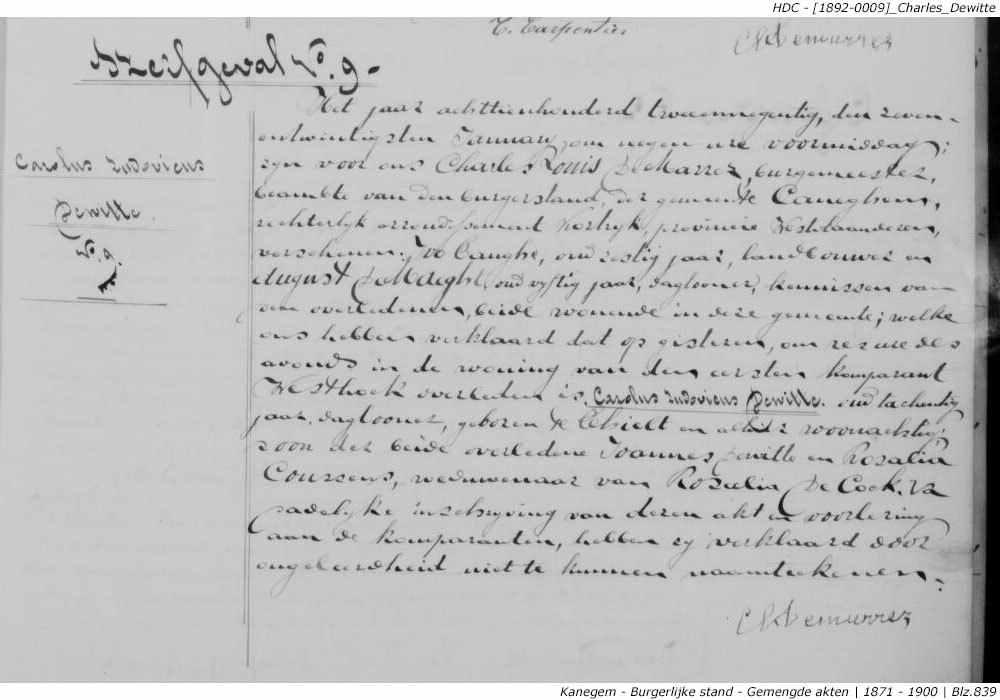 HDC - [1892-0009]_Charles_Dewitte
C. Carpentier
Ch Demurrez
Sterfgeval No. 9.
Carolus Ludovicus
Dewitte
No. 9.
Het jaar achttienhonderd tweeennegentig, den zeven-
entwintigsten January om negen ure voormiddag;
zyn voor ons Charles Louis DeMarrez, burgemeester,
beambte van den burgerstand, der gemeente Caneghem,
rechterlyk arrondissement Kortryk, provincie Westvlaanderen,
verschenen: Ivo Caughe, oud zestig jaar, landbouwer en
August DeMaeght, oud vyftig jaar, daglooner, kennissen van
den overledenen, beide wonende in deze gemeente; welke
ons hebben verklaard dat op gisteren, om zes ure des
avonds in de woning van den eersten komparant
Westhoek overleden is, Carolus Ludovicus Dewitte oud tachentig
jaar, daglooner, geboren te Thielt en alhier woonachtig,
zoon der beide overledene Joannes Dewitte en Rozalia
Coussens, weduwenaar van Rosalia De Cock. Na
dadelyke inschryving van dezen akt en voorlezing
aan de komparanten, hebben zy verklaard door
ongeleerdheid niet te kunnen naamteekenen.
Ch Demurrez
Kanegem - Burgerlijke stand - Gemengde akten | 1871 - 1900 | Blz.839